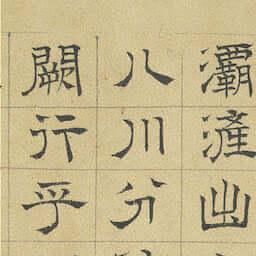 灞滻出
八川分
闕行乎